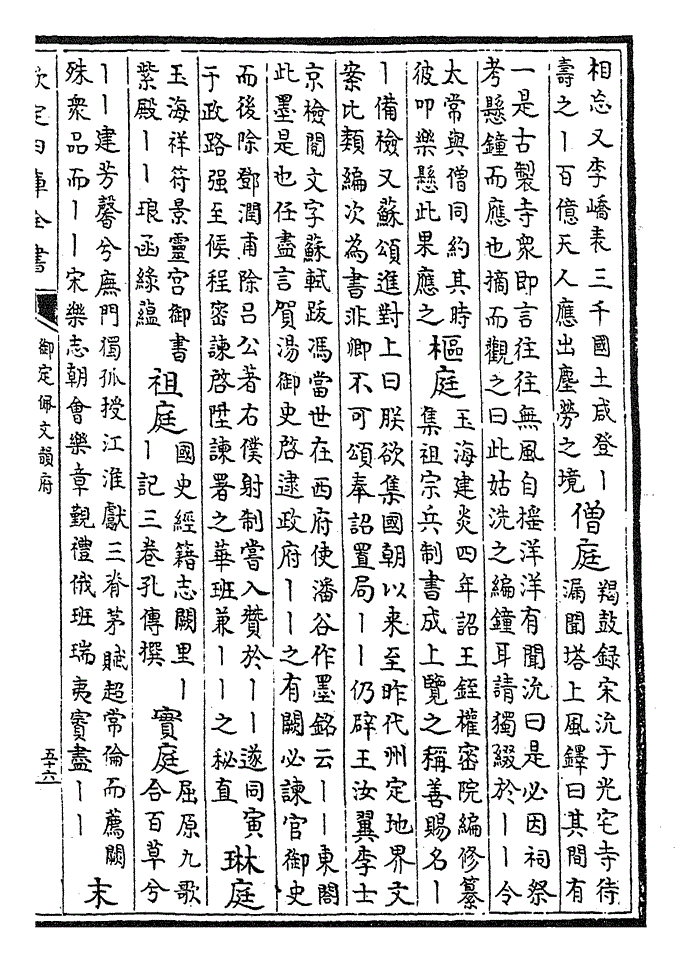 相忘又李嶠表三千國土咸登丨
壽之丨百億天人應出塵勞之境
僧庭
羯鼓錄宋沇于光宅寺待
漏聞塔上風鐸曰其間有
一是古製寺衆即言往往無風自摇洋洋有聞沇曰是必因祠祭
考懸鐘而應也摘而觀之曰此姑洗之編鐘耳請獨綴於丨丨令
太常與僧同約其時
彼叩樂懸此果應之
樞庭
玉海建炎四年詔王銍權密院編修纂
集祖宗兵制書成上覽之稱善賜名丨
丨備檢又蘇頌進對上曰朕欲集國朝以来至昨代州定地界文
案比類編次為書非卿不可頌奉詔置局丨丨仍辟王汝翼李士
京檢閲文字蘇軾跋馮當世在西府使潘谷作墨銘云丨丨東閣
此墨是也任盡言賀湯御史啓逮政府丨丨之有闕必諫官御史
而後除鄧潤甫除吕公著右僕射制嘗入贊於丨丨遂同寅
于政路强至候程密諫啓陞諫署之華班兼丨丨之秘直
琳庭
玉海祥符景靈宫御書
紫殿丨丨琅函綠蘊
祖庭
國史經籍志闕里丨
丨記三卷孔傳撰
實庭
屈原九歌
合百草兮
丨丨建芳馨兮廡門獨孤授江淮獻三脊茅賦超常倫而薦闕
殊衆品而丨丨宋樂志朝會樂章覲禮俄班瑞夷賓盡丨丨
末
欽定四庫全書
御定佩文韻府
五十六